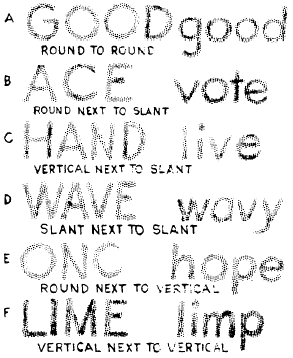 A GOOD good
ROUND TO ROUND
B ACE vote
ROUND NEXT TO SLANT
C HAND live
VERTICAL NEXT TO SLANT
D WAVE wavy
SLANT NEXT TO SLANT
E ONC hope
ROUND NEXT TO VERTICAL
F LIME limp
VERTICAL NEXT TO VERTICAL